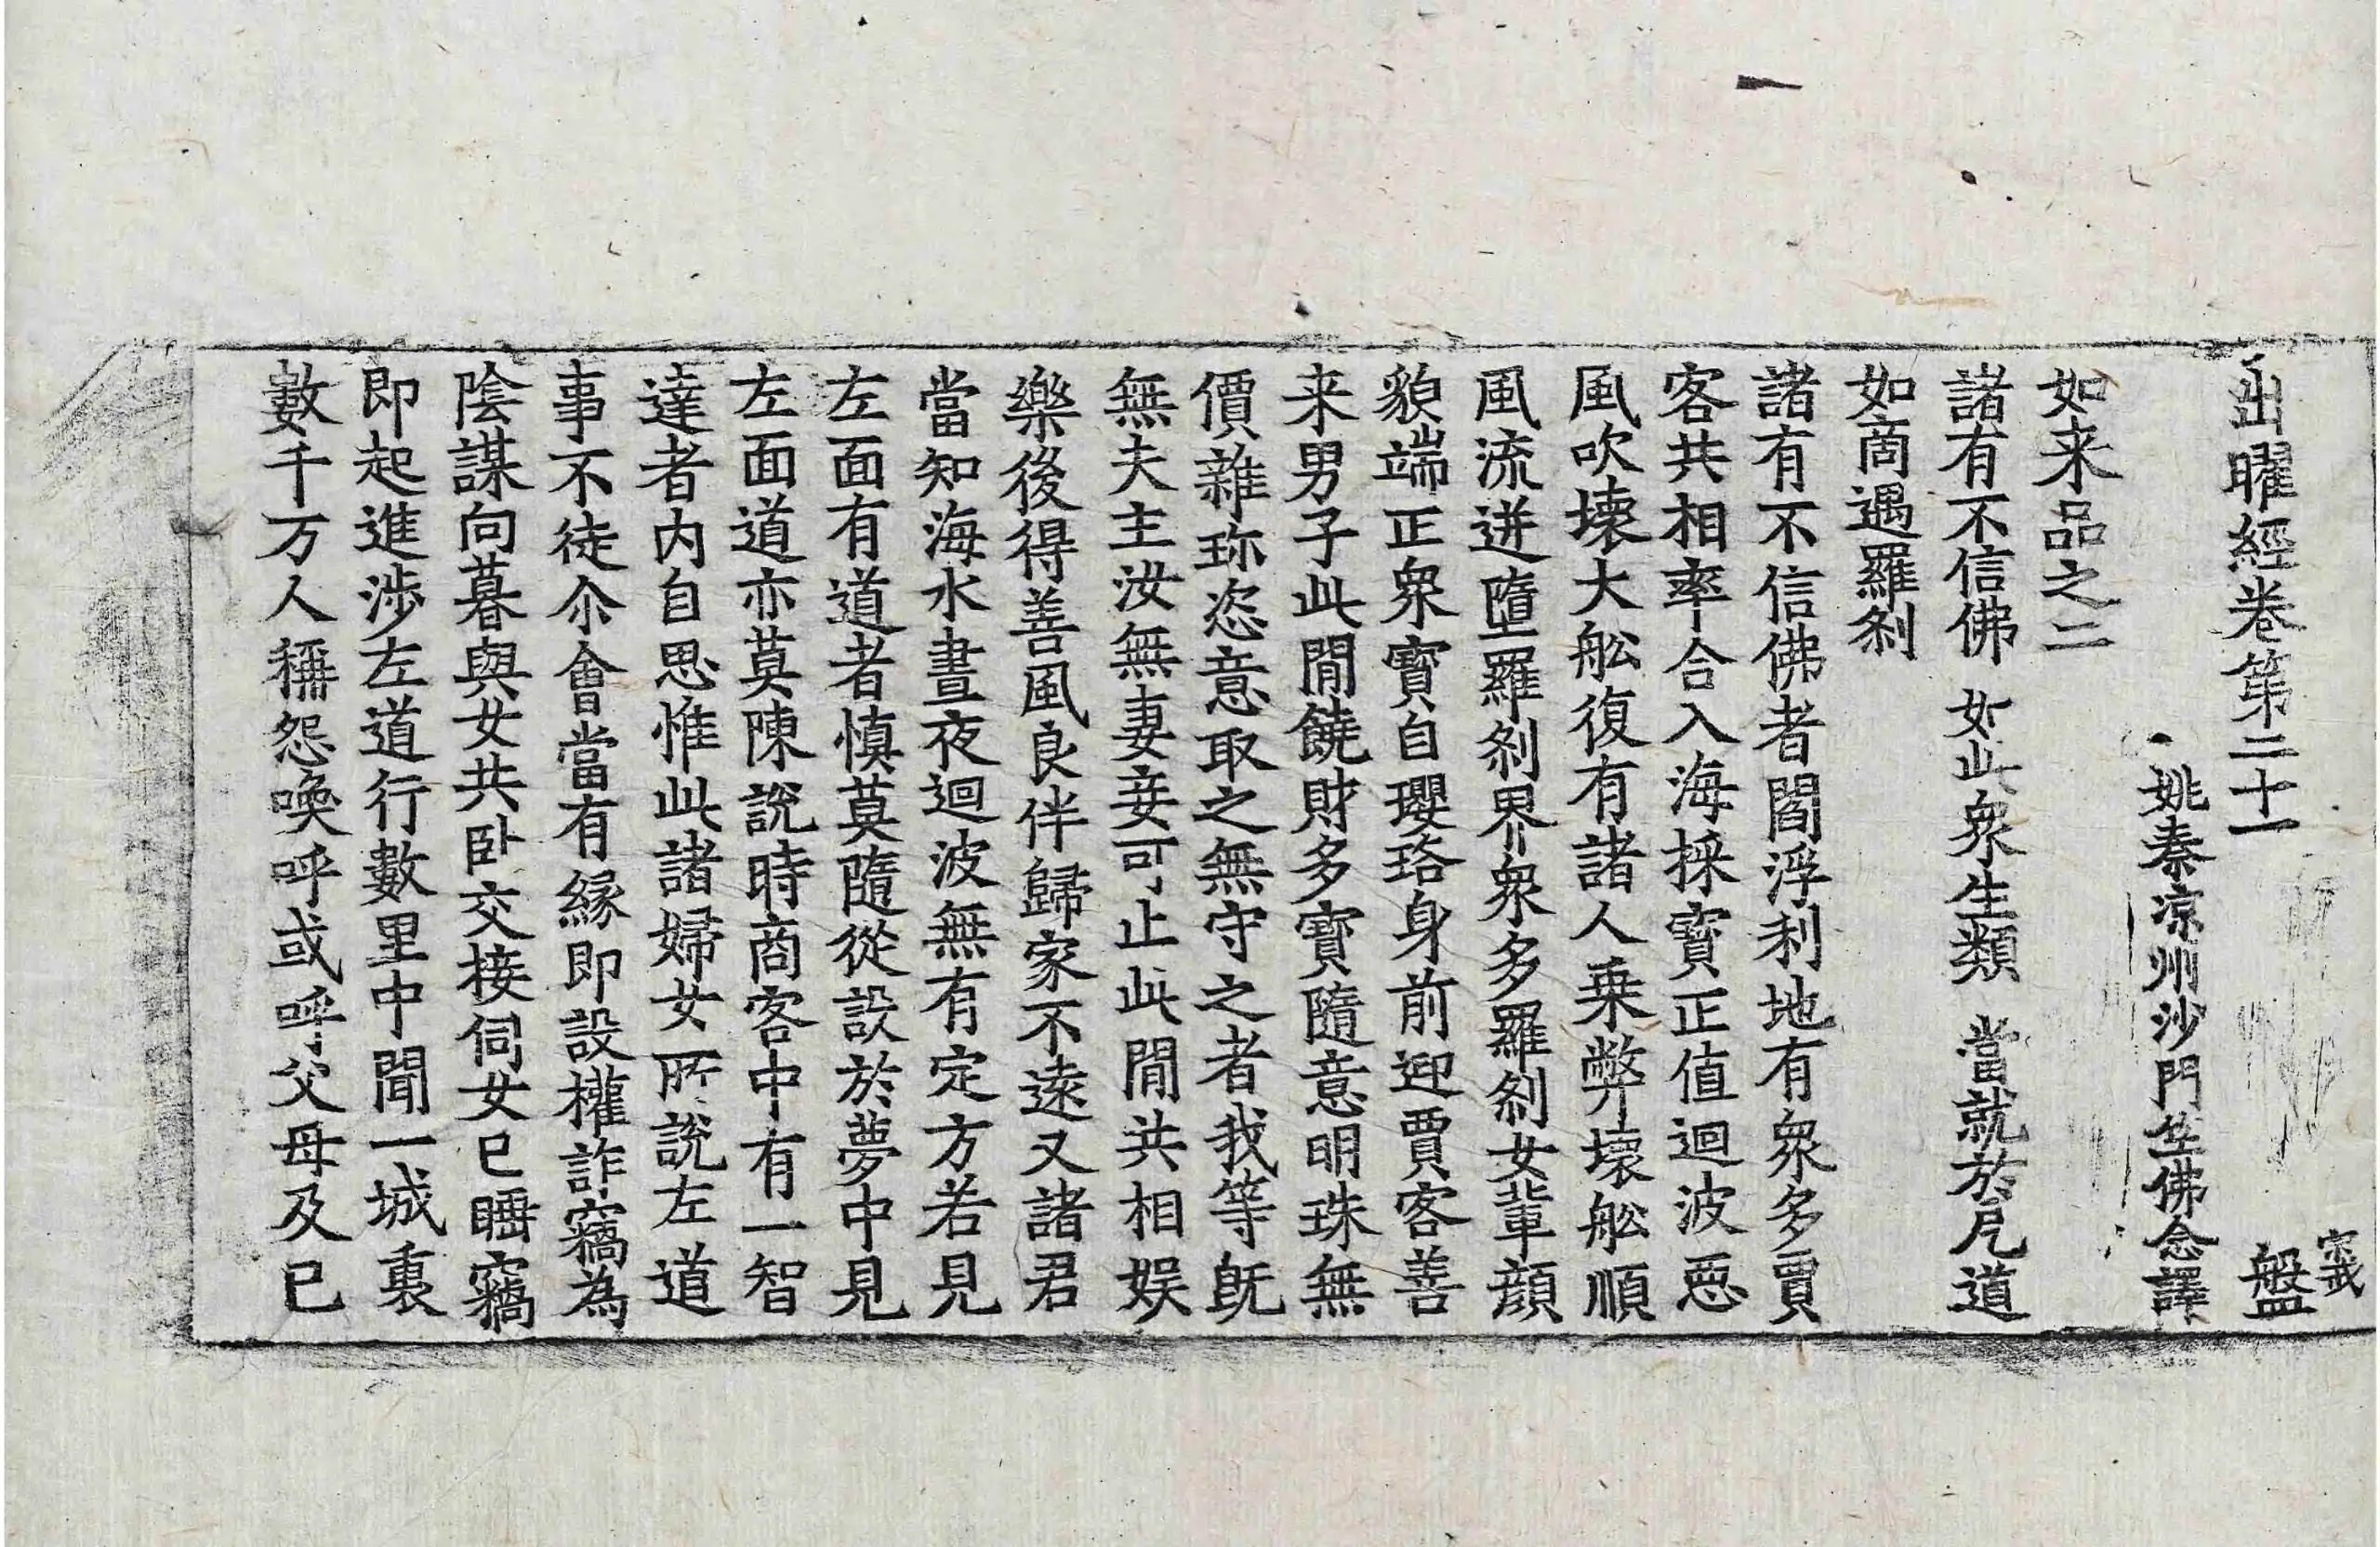 出曜經卷第二十一　盤
姚秦涼州沙門竺佛念譯
如来品之二
諸有不信佛　如此衆生類　當就於㞐道
如商遇羅刹
諸有不信佛者閻浮利地有衆多賈
客共相率合入海採寶正值迴波惡
風吹壞大舩復有諸人乗弊壞舩順
風流迸墮羅刹界衆多羅刹女輩顔
貌端正衆寶自瓔珞身前迎賈客善
来男子此閒饒財多寶隨意明珠無
價雜珎恣意取之無守之者我等旣
無夫主汝無妻妾可止此閒共相娱
樂後得善風良伴歸家不逺又諸君
當知海水晝夜迴波無有定方若見
左面有道者慎莫隨從設於夢中見
左面道亦莫陳說時商客中有一智
達者内自思惟此諸婦女所說左道
事不徒尒會當有縁即設權詐竊為
陰謀向暮與女共卧交接伺女已睡竊
即起進渉左道行數里中聞一城裏
數千万人稱怨喚呼或呼父母及已